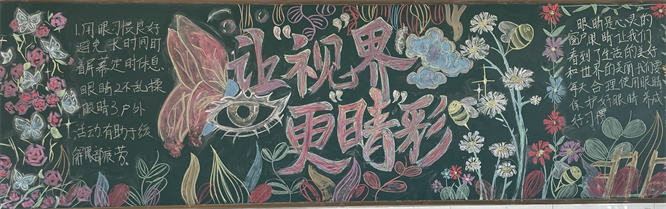 1.用眼习惯良好
避免长时间盯
屏幕定时休息
眼睛2不乱揉
眼睛3户外
活动有助于缓
解眼部疲劳
让视界
更“睛”彩
眼睛是心灵的
窗户眼睛让我们
看到了生活的美好
和世界的美丽我们要
每天合理使用眼睛
保护好眼睛养成
好习惯